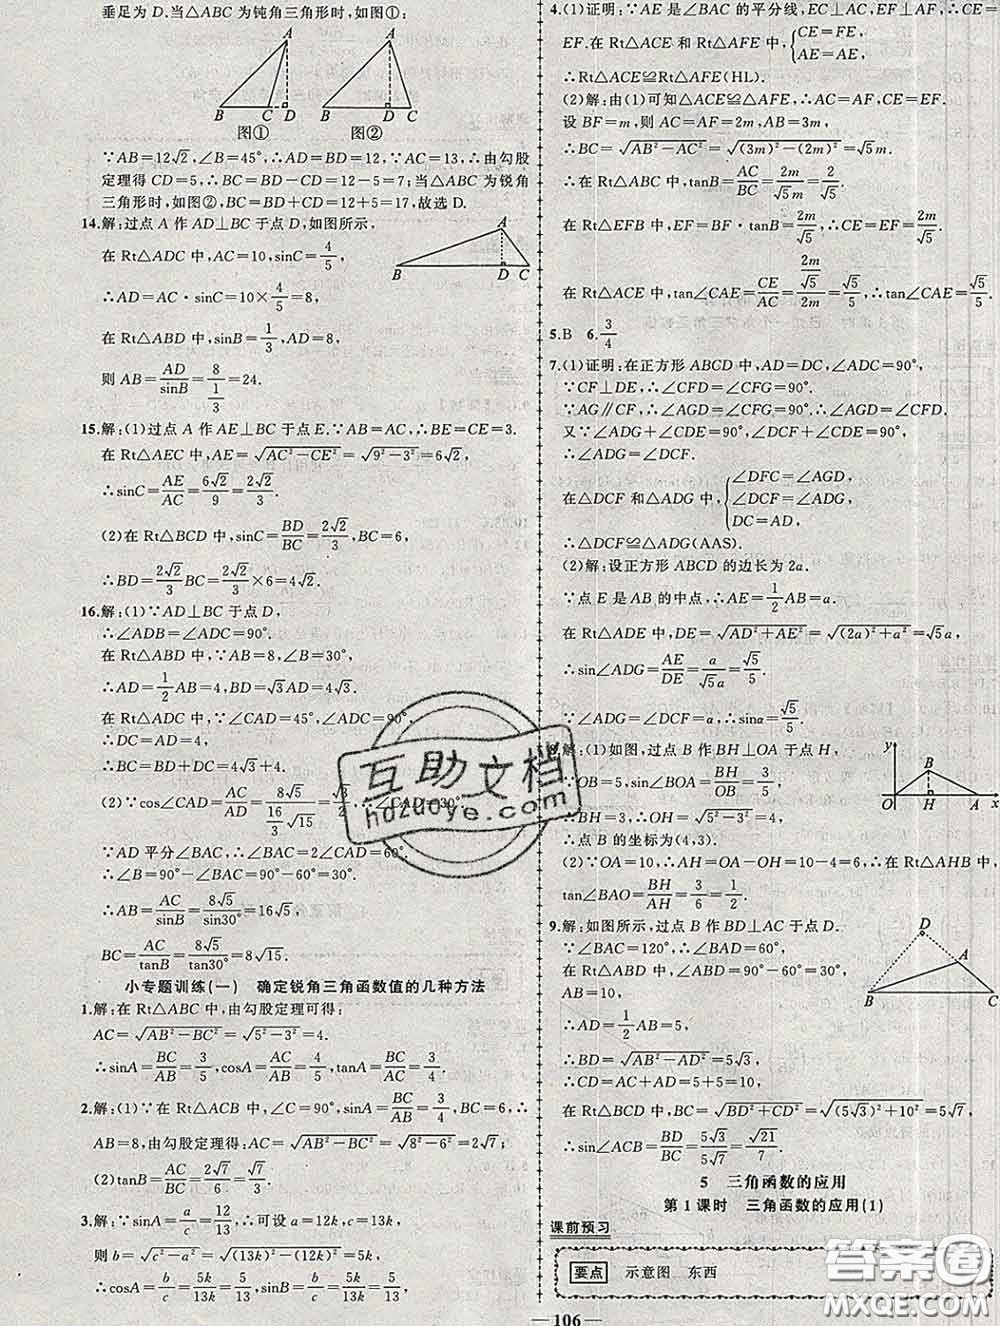 垂足为 D. 当△ABC 为钝角三角形时,如图①:
A
B C D
图①
A
B D C
图②
∵AB=12√2,∠B=45°,∴AD=BD=12,∵AC=13,∴由勾股
定理得 CD=5,∴BC=BD-CD=12-5=7;当△ABC 为锐角
三角形时,如图②,BC=BD+CD=12+5=17,故选 D.
14.解:过点 A 作 AD⊥BC 于点 D,如图所示,
A
B D C
在 Rt△ADC 中,AC=10,sinC=4/5,
∴AD=AC·sinC=10×4/5=8,
在 Rt△ABD 中,sinB=1/3,AD=8,
则 AB=AD/sinB=8/(1/3)=24.
15.解:(1)过点 A 作 AE⊥BC 于点 E.∵AB=AC,∴BE=CE=3.
在 Rt△AEC 中,AE=√(AC²-CE²)=√(9²-3²)=6√2,
∴sinC=AE/AC=6√2/9=2√2/3.
(2)在 Rt△BCD 中,sinC=BD/BC=2√2/3,BC=6,
∴BD=2√2/3 BC=2√2/3×6=4√2.
16.解:(1)∵AD⊥BC 于点 D,
∴∠ADB=∠ADC=90°.
在 Rt△ABD 中,∵AB=8,∠B=30°,
∴AD=1/2 AB=4,BD=√3AD=4√3.
在 Rt△ADC 中,∵∠CAD=45°,∠ADC=90°,
∴DC=AD=4,
∴BC=BD+DC=4√3+4.
(2)∵cos∠CAD=AC/AD=8√5/(16/3 √15)=
∴∠CAD=30°.
∵AD 平分∠BAC,∴∠BAC=2∠CAD=60°.
∴∠B=90°-∠BAC=90°-60°=30°.
∴AB=AC/sinB=8√5/sin30°=16√5,
BC=AC/tanB=8√5/tan30°=8√15.
小专题训练(一) 确定锐角三角函数值的几种方法
1.解:在 Rt△ABC 中,由勾股定理可得:
AC=√(AB²-BC²)=√(5²-3²)=4.
∴sinA=BC/AB=3/5,cosA=AC/AB=4/5,tanA=BC/AC=3/4.
2.解:(1)∵在 Rt△ACB 中,∠C=90°,sinA=BC/AB=3/4,BC=6,∴
AB=8,由勾股定理得:AC=√(AB²-BC²)=√(8²-6²)=2√7;
(2)tanB=AC/BC=2√7/6=√7/3.
3.解:∵sinA=a/c=12/13,∴可设 a=12k,c=13k,
则 b=√(c²-a²)=√((13k)²-(12k)²)=5k,
∴cosA=b/c=5k/13k=5/13,sinB=b/c=5k/13k=5/13.
4.(1)证明:∵AE 是∠BAC 的平分线,EC⊥AC,EF⊥AF,∴CE=
EF. 在 Rt△ACE 和 Rt△AFE 中,{CE=FE, AE=AE,
∴Rt△ACE≌Rt△AFE(HL).
(2)解:由(1)可知△ACE≌△AFE,∴AC=AF,CE=EF.
设 BF=m,则 AC=AF=2m,AB=3m,
∴BC=√(AB²-AC²)=√((3m)²-(2m)²)=√5m.
∴在 Rt△ABC 中,tanB=AC/BC=2m/√5m=2/√5.
在 Rt△EFB 中,EF=BF·tanB=2m/√5,∴CE=EF=2m/√5.
在 Rt△ACE 中,tan∠CAE=CE/AC=(2m/√5)/2m=√5/5,∴tan∠CAE=√5/5.
5.B 6.3/4
7.(1)证明:在正方形 ABCD 中,AD=DC,∠ADC=90°,
∵CF⊥DE,∴∠DFC=∠CFG=90°.
∵AG∥CF,∴∠AGD=∠CFG=90°,∴∠AGD=∠CFD.
又∵∠ADG+∠CDE=90°,∠DCF+∠CDE=90°,
∴∠ADG=∠DCF.
在△DCF 和△ADG 中,{∠DFC=∠AGD, ∠DCF=∠ADG, DC=AD,
∴△DCF≌△ADG(AAS).
(2)解:设正方形 ABCD 的边长为 2a.
∵点 E 是 AB 的中点,∴AE=1/2 AB=a.
在 Rt△ADE 中,DE=√(AD²+AE²)=√((2a)²+a²)=√5a,
∴sin∠ADG=AE/DE=a/√5a=√5/5.
∵∠ADG=∠DCF=α,∴sinα=√5/5.
解:(1)如图,过点 B 作 BH⊥OA 于点 H,
y
B
O H A x
∵OB=5,sin∠BOA=BH/OB=3/5.
∴BH=3,∴OH=√(5²-3²)=4.
∴点 B 的坐标为(4,3).
(2)∵OA=10,∴AH=OA-OH=10-4=6,∴在 Rt△AHB 中,
tan∠BAO=BH/AH=3/6=1/2.
9.解:如图所示,过点 B 作 BD⊥AC 于点 D.
D
A
B C
∵∠BAC=120°,∴∠BAD=60°,
AB=10,
∴AD=1/2 AB=5,
∴BD=√(AB²-AD²)=5√3,
∴CD=AC+AD=5+5=10,
在 Rt△BCD 中,BC=√(BD²+CD²)=√((5√3)²+10²)=5√7,
∴sin∠ACB=BD/BC=5√3/5√7=√21/7.
5 三角函数的应用
第 1 课时 三角函数的应用(1)
课前预习
要点 示意图 东西
106
互助文档
hdzuoye.com
答案圈
MXQE.COM